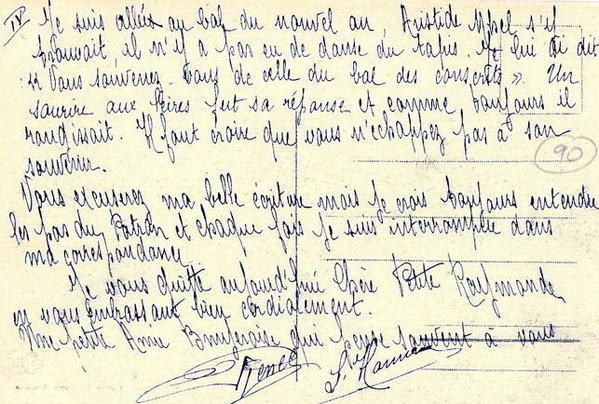 IV Je suis allée au bal du nouvel an, Aristide s'y
trouvait, il n'y a pas eu de danse du tapis. Je lui ai dit
: « Vous souvenez-vous de celle du bal des conscrits ». Un
sourire aux lèvres fut sa réponse et comme toujours il
rougissait. Il faut croire que vous n'échappez pas à son
souvenir.
90
Vous excuserez ma belle écriture mais je crois toujours entendre
les pas du Patron et chaque fois je suis interrompue dans
ma correspondance.
Je vous quitte aujourd'hui Chère Petite Raymonde
en vous embrassant bien cordialement.
Une petite Amie qui pense souvent à vous
Renée